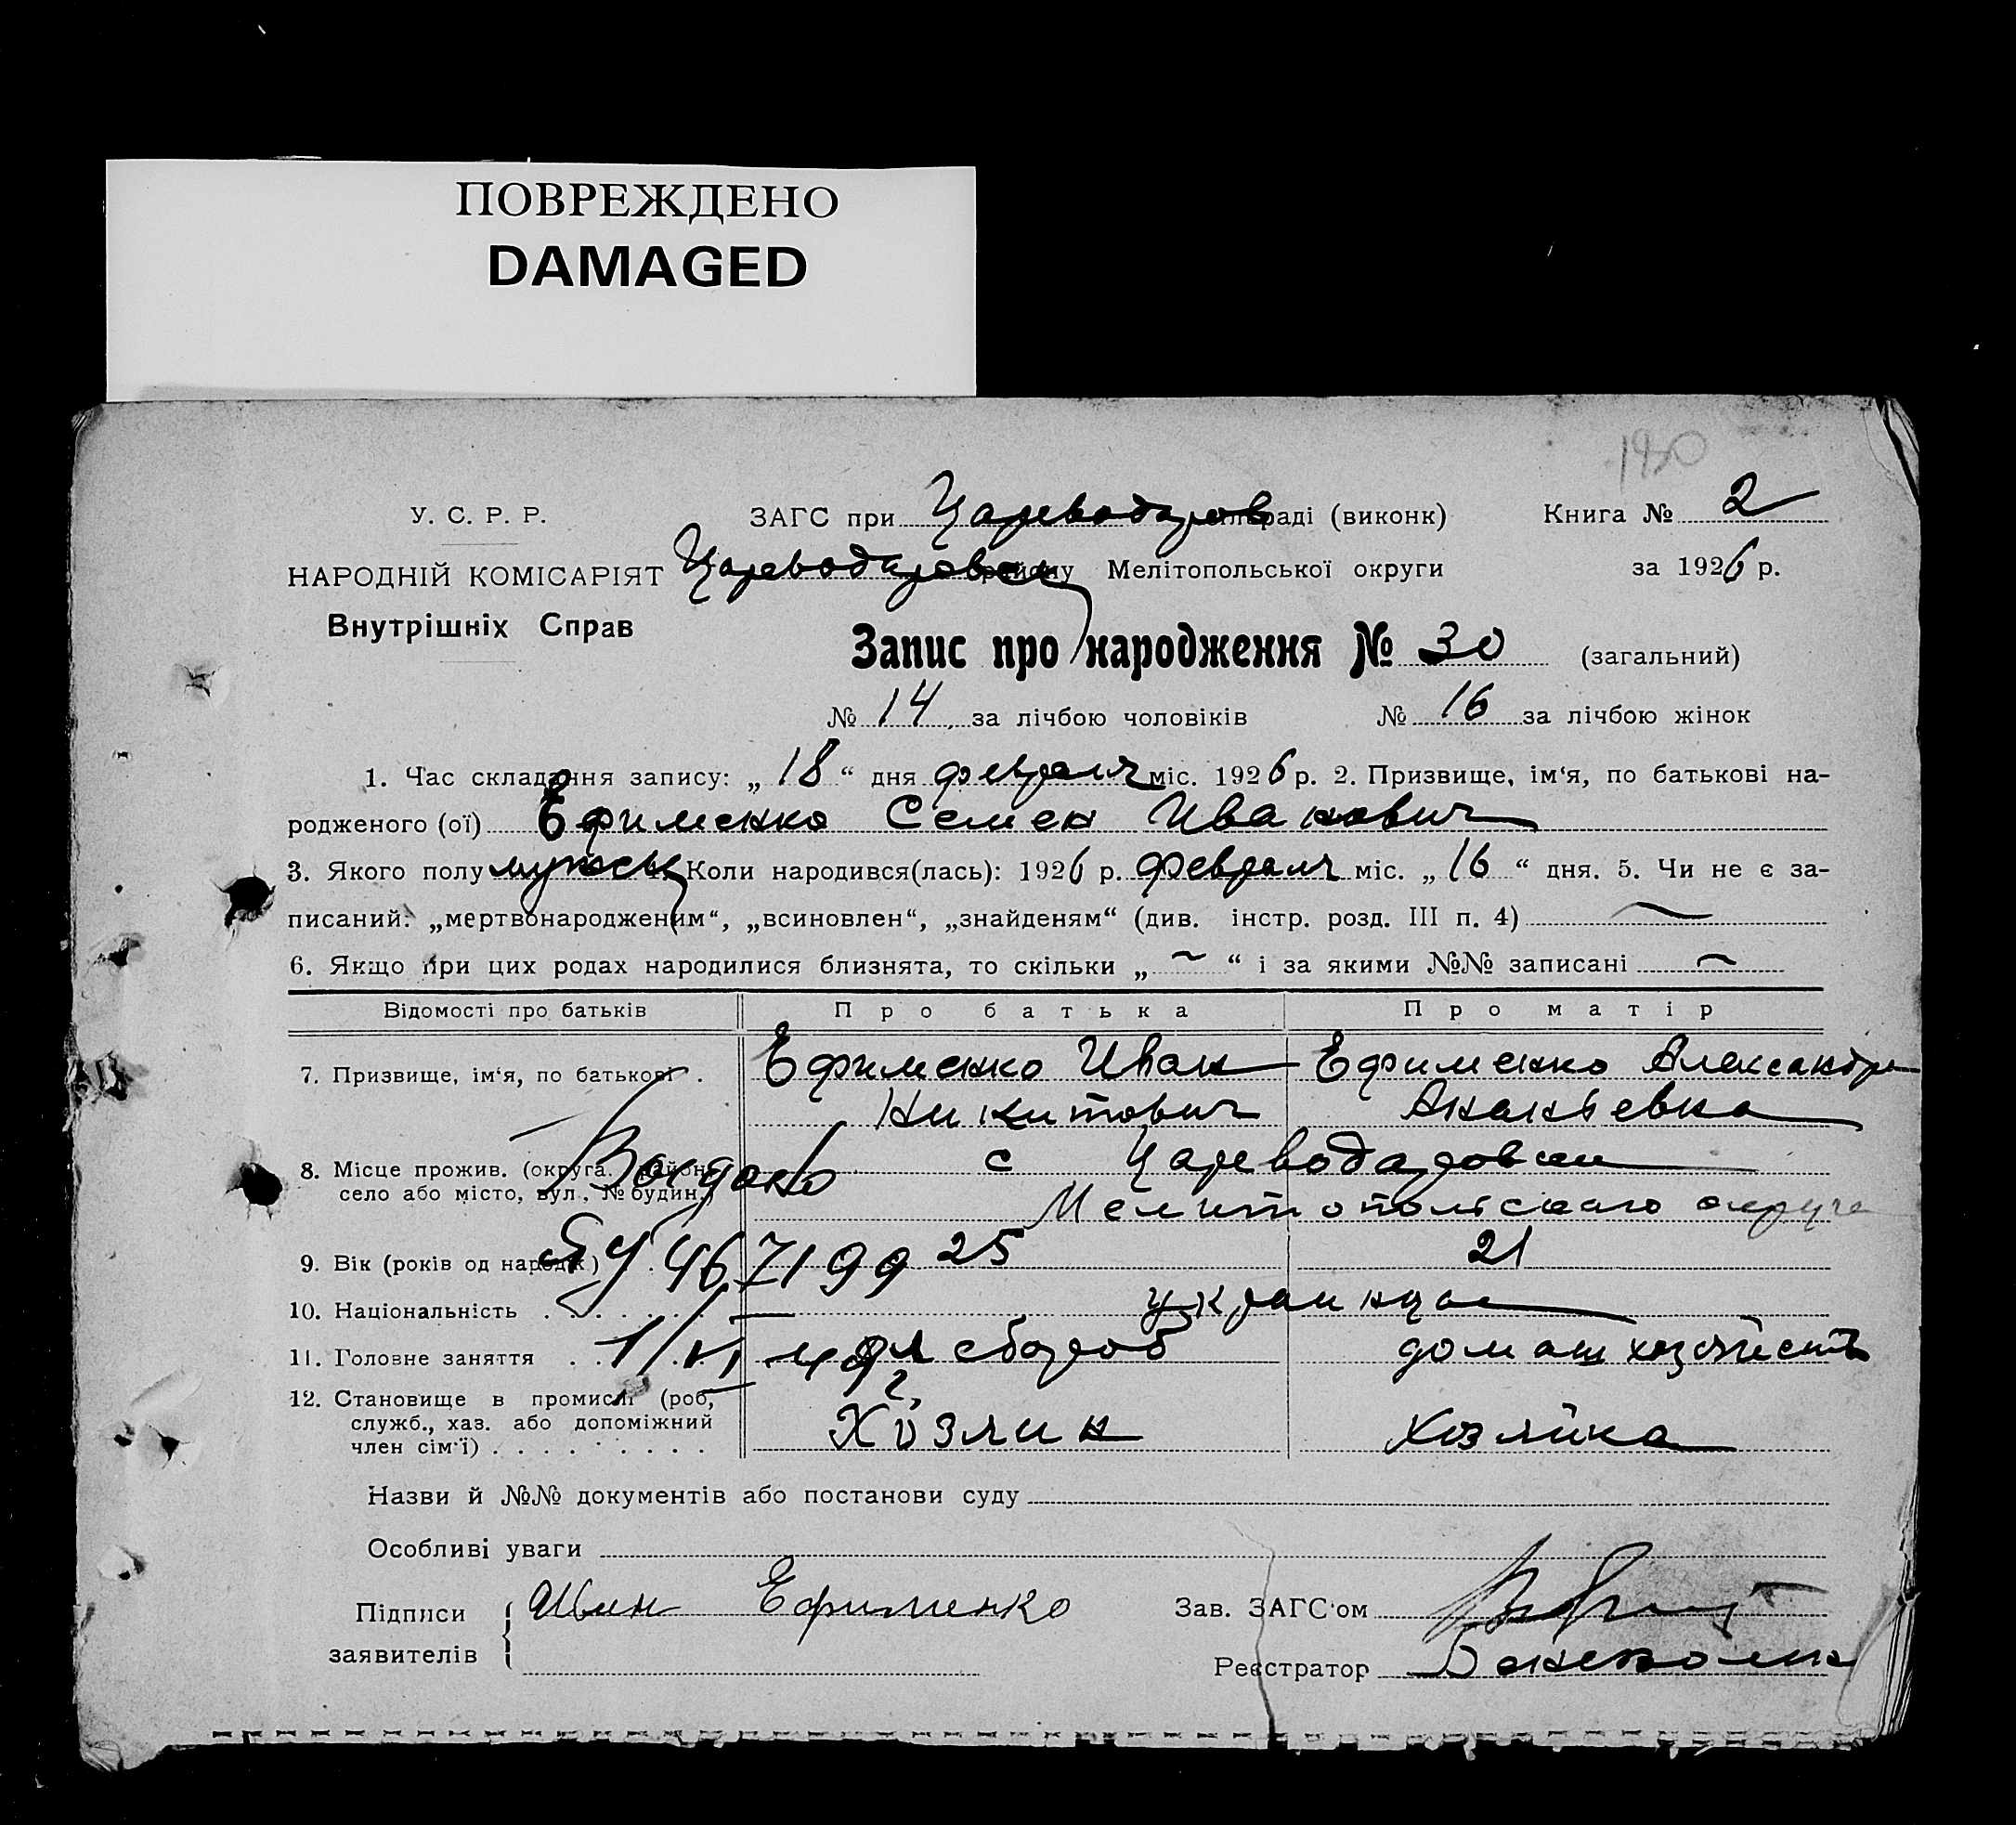 ПОВРЕЖДЕНО
DAMAGED
1930
У. С. Р. Р.
ЗАГС при Цареводаров сільраді (виконк)
Книга № 2
НАРОДНІЙ КОМІСАРІЯТ
Цареводаровск району Мелітопольської округи
за 1926 р.
Внутрішніх Справ
Запис про народження № 30 (загальний)
№ 14 за лічбою чоловіків № 16 за лічбою жінок
1. Час складання запису: „ 18 “ дня февраля міс. 1926 р. 2. Призвище, ім‘я, по батькові на-
родженого (ої) Ефименко Семен Иванович
3. Якого полу мужск 4. Коли народився(лась): 1926 р. февраля міс. „ 16 “ дня. 5. Чи не є за-
писаний: „мертвонародженим“, „всиновлен“, „знайденям“ (див. інстр. розд. III п. 4) ~
6. Якщо при цих родах народилися близнята, то скільки „ ~ “ і за якими №№ записані ~
Відомості про батьків Про батька Про матір
7. Призвище, ім‘я, по батькові . Ефименко Иван Ефименко Александра
Никитович Ананьевна
8. Місце прожив. (округа, район, с Цареводаровки
село або місто, вул., № будин.) Мелитопольскаго округа
Выдано
9. Вік (років од народж.) 25 21
467199
10. Національність украинцы
11. Головне заняття хлебороб домаш хозяйств
12. Становище в промислі (роб,
служб., хаз. або допоміжний Хозяин Хозяйка
член сім‘ї)
Назви й №№ документів або постанови суду
Особливі уваги
Підписи Иван Ефименко Зав. ЗАГС‘ом
заявителів Реєстратор